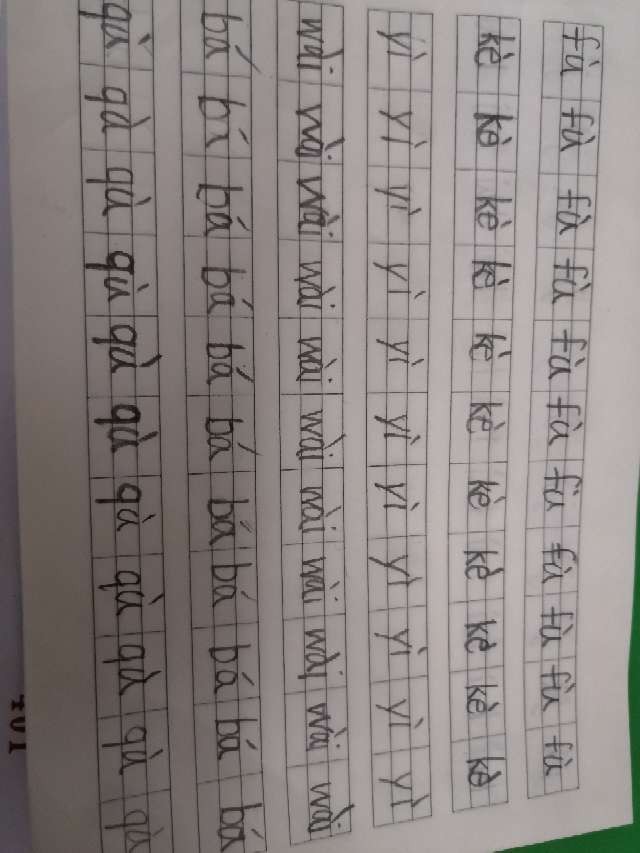 fù fù fù fù fù fù fù fù fù fù fù
kè kè kè kè kè kè kè kè kè kè kè
yì yì yì yì yì yì yì yì yì yì yì
wài wài wài wài wài wài wài wài wài wài wài
bá bá bá bá bá bá bá bá bá bá bá
qù qù qù qù qù qù qù qù qù qù qù
401